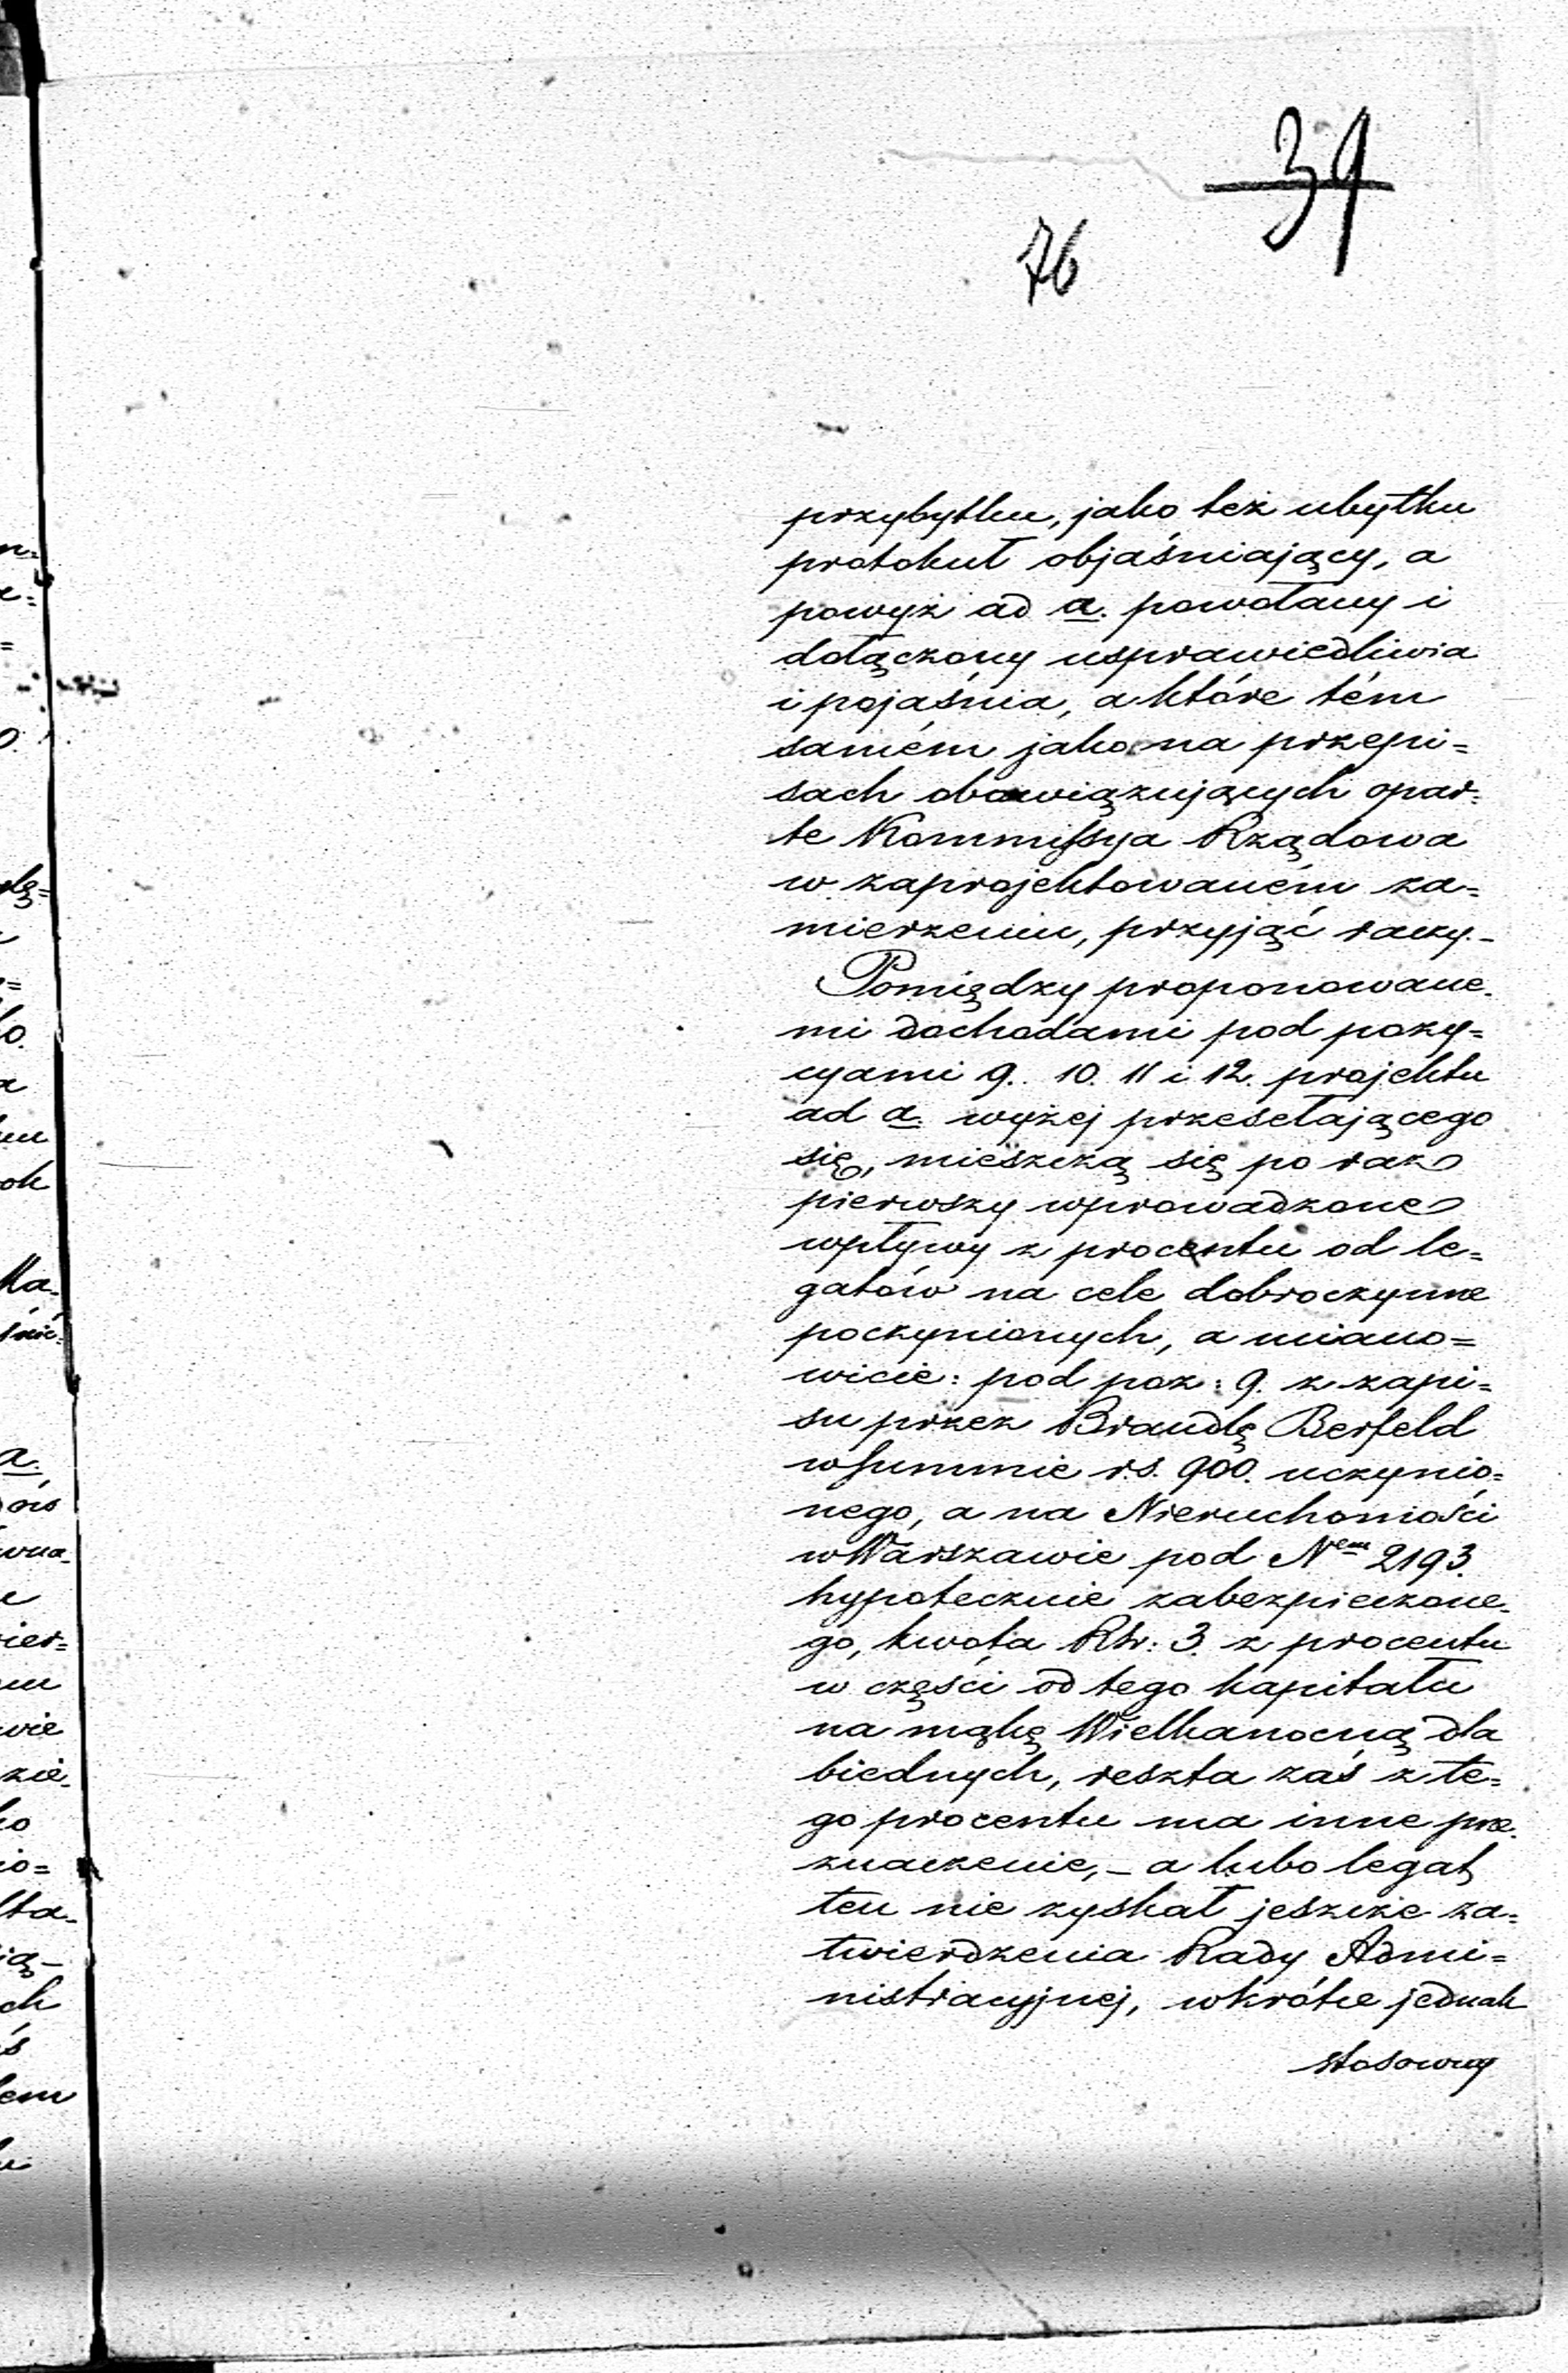 39
76
przybytku, jako też ubytku
protokuł objaśniający, a
powyż ad a. powołany i
dołączony usprawiedliwia
i pojaśnia, a które tém
samém jako na przepi=
sach obowiązujących opar=
te Kommissya Rządowa
w zaprojektowaném za=
mierzeniu, przyjąć raczy.-
Pomiędzy proponowane.
mi dochodami pod pozy=
cyami 9. 10. 11 i 12. projektu
ad a. wyżej przesełającego
się, mieszczą się po raz
pierwszy wprowadzone
wpływy z procentu od le=
gatów na cele dobroczynne
poczynionych, a miano=
wicie: pod poz: 9. z zapi=
su przez Braudlę Berfeld
w summie r.s. 900. uczynio=
nego, a na Nieruchomości
w Warszawie pod Nem 2193.
hypotecznie zabezpieczone.
go, kwota Rsr: 3. z procentu
w części od tego kapitału
na mąkę Wielkanocną dla
biednych, reszta zaś z te=
go procentu ma inne prze.
znaczenie,- a lubo legat
ten nie zyskał jeszcze za=
twierdzenia Rady Admi=
nistracyjnej, wkrótce jednak
stosowny